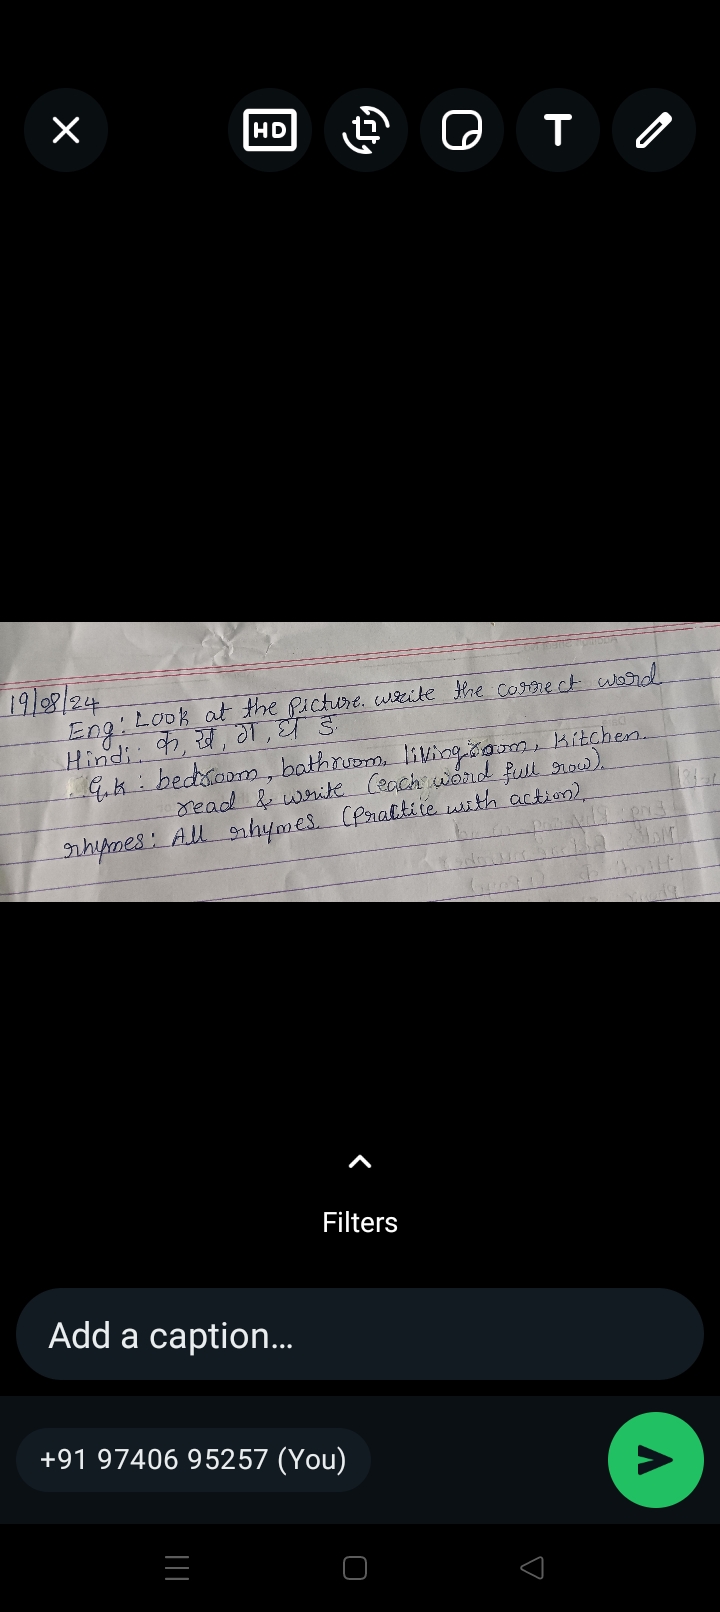 HD
T
19/08/24
Eng: Look at the Picture. write the correct word
Hindi: क, ख, ग, घ ङ.
G.K: bedroom, bathroom, living room, Kitchen.
read & write (each word full row).
rhymes: All rhymes. (Practice with action).
Filters
Add a caption...
+91 97406 95257 (You)